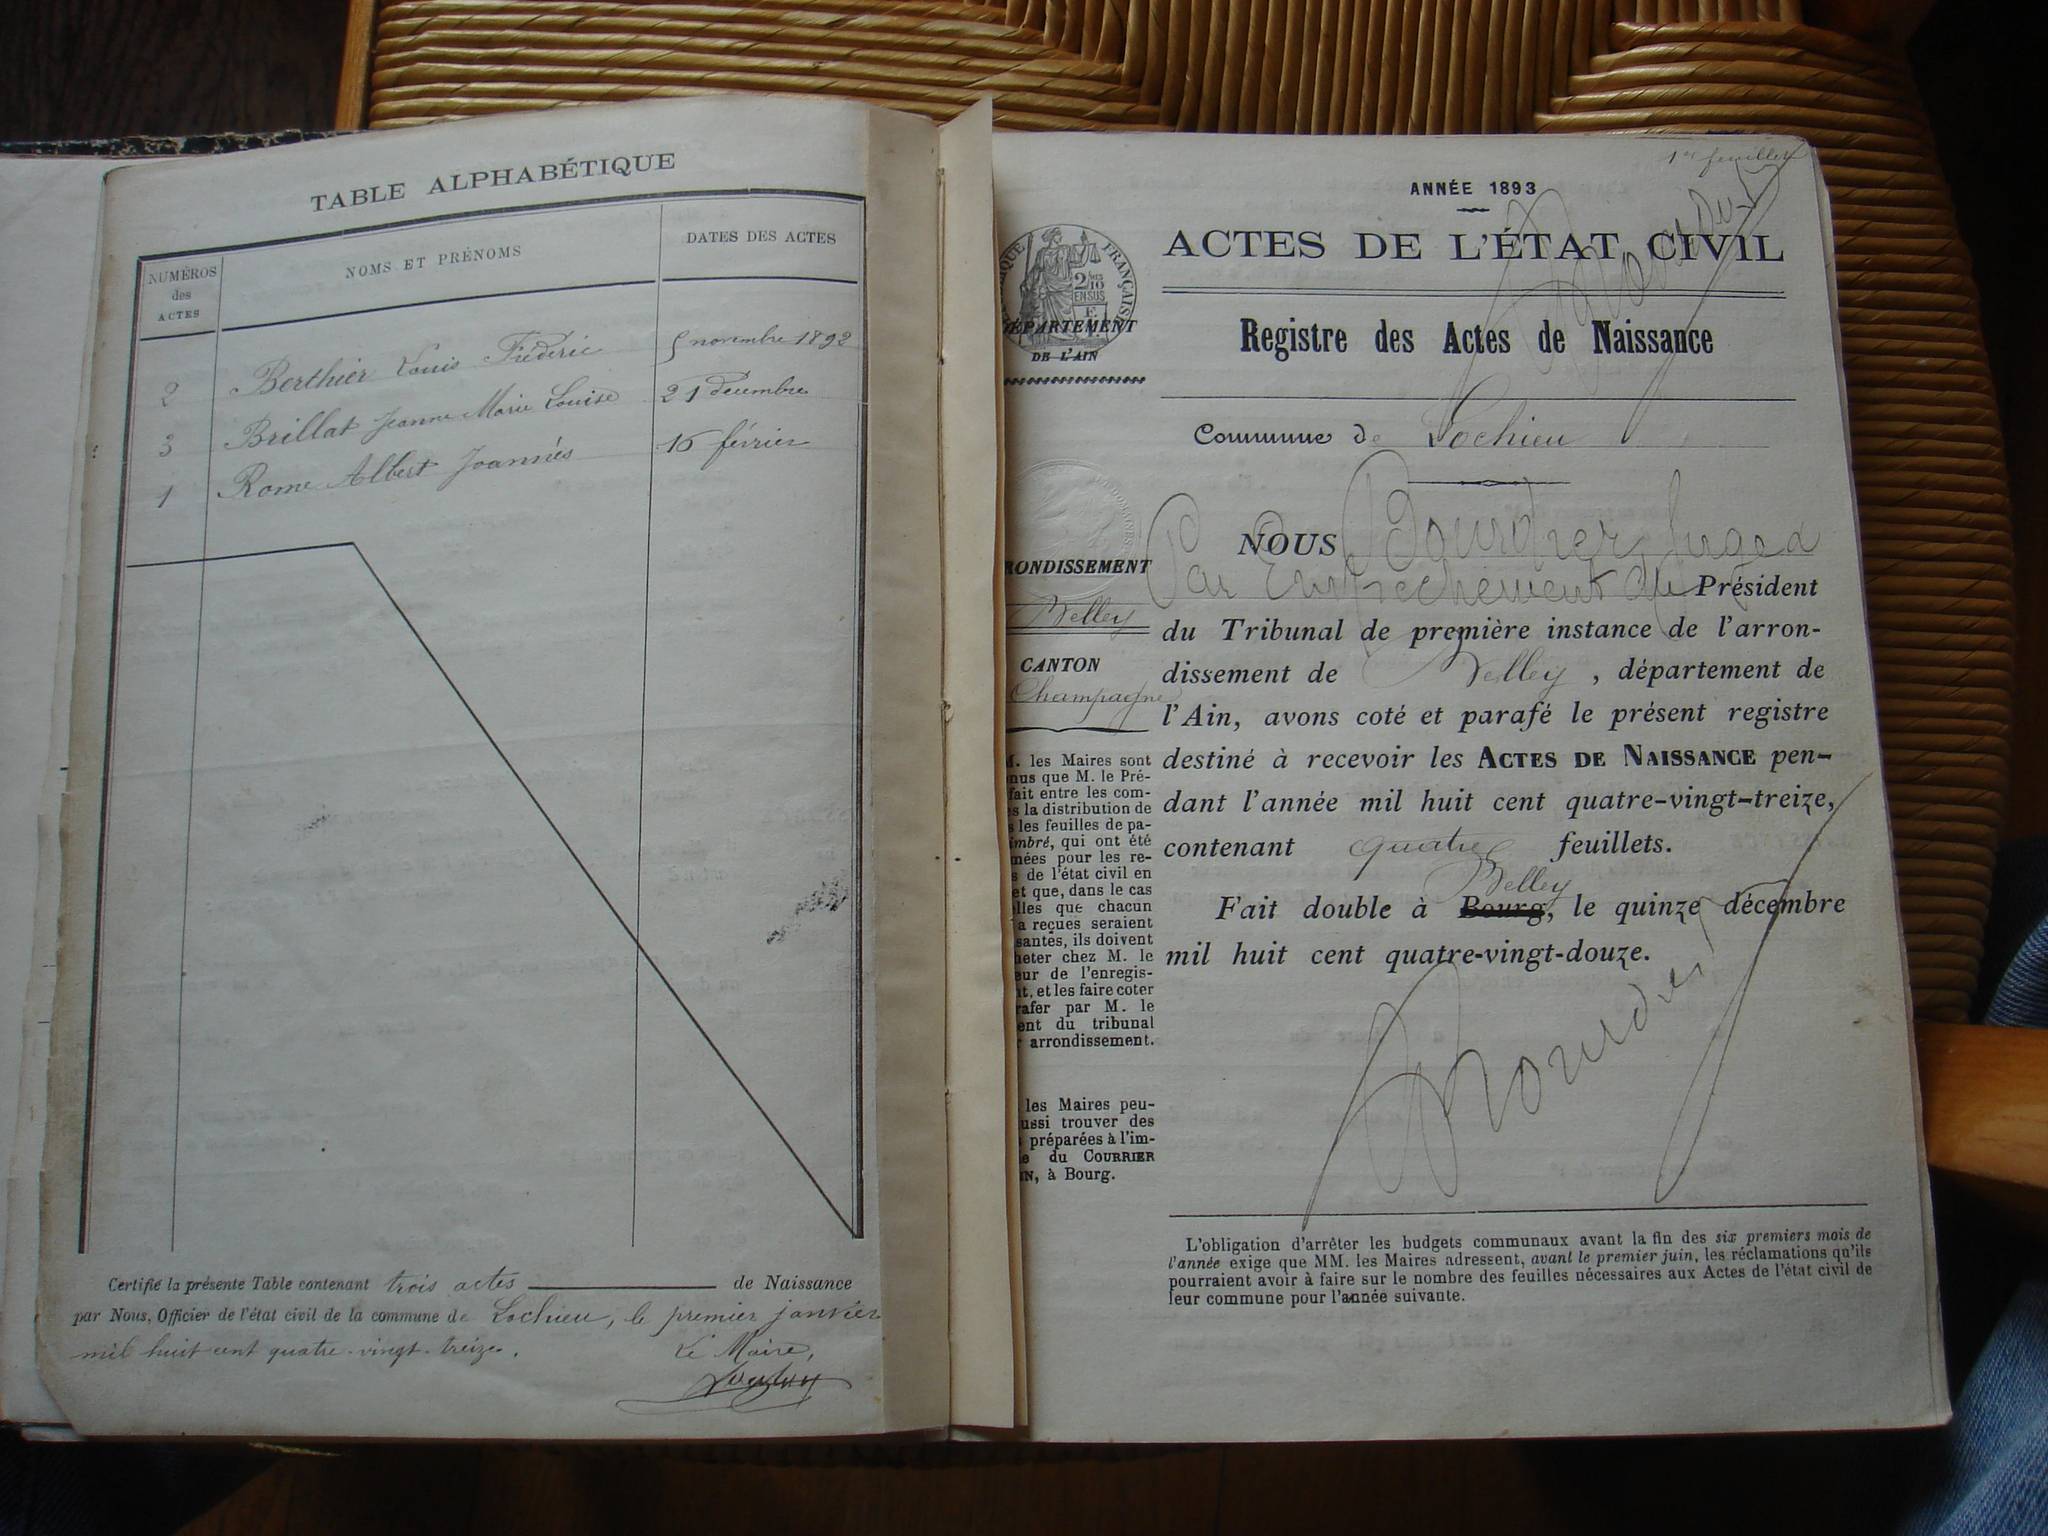 TABLE ALPHABÉTIQUE
NUMÉROS
des
ACTES
NOMS ET PRÉNOMS
DATES DES ACTES
2 Berthier Louis Fréderic 5 novembre 1892
3 Brillat Jeanne Marie Louise 21 décembre
1 Rome Albert Joannès 16 février
Certifié la présente Table contenant trois actes de Naissance
par Nous, Officier de l'état civil de la commune de Lochieu, le premier janvier
mil huit cent quatre-vingt-treize.
Le Maire,
1er feuillet
ANNÉE 1893
ACTES DE L'ÉTAT CIVIL
RÉPUBLIQUE FRANÇAISE
2/10
EN SUS
DÉPARTEMENT
DE L'AIN
Registre des Actes de Naissance
Commune de Lochieu
RONDISSEMENT
Belley
CANTON
Champagne
M. les Maires sont
nus que M. le Pré-
fait entre les com-
s la distribution de
s les feuilles de pa-
imbré, qui ont été
mées pour les re-
s de l'état civil en
et que, dans le cas
elles que chacun
a reçues seraient
santes, ils doivent
heter chez M. le
eur de l'enregis-
nt, et les faire coter
rafer par M. le
ent du tribunal
r arrondissement.
les Maires peu-
ussi trouver des
préparées à l'im-
e du COURRIER
IN, à Bourg.
NOUS Bourdier, Juge
Par Empêchement du Président
du Tribunal de première instance de l'arron-
dissement de Belley, département de
l'Ain, avons coté et parafé le présent registre
destiné à recevoir les ACTES DE NAISSANCE pen-
dant l'année mil huit cent quatre-vingt-treize,
contenant quatre feuillets.
Belley
Fait double à Bourg, le quinze décembre
mil huit cent quatre-vingt-douze.
Bourdier
L'obligation d'arrêter les budgets communaux avant la fin des six premiers mois de
l'année exige que MM. les Maires adressent, avant le premier juin, les réclamations qu'ils
pourraient avoir à faire sur le nombre des feuilles nécessaires aux Actes de l'état civil de
leur commune pour l'année suivante.